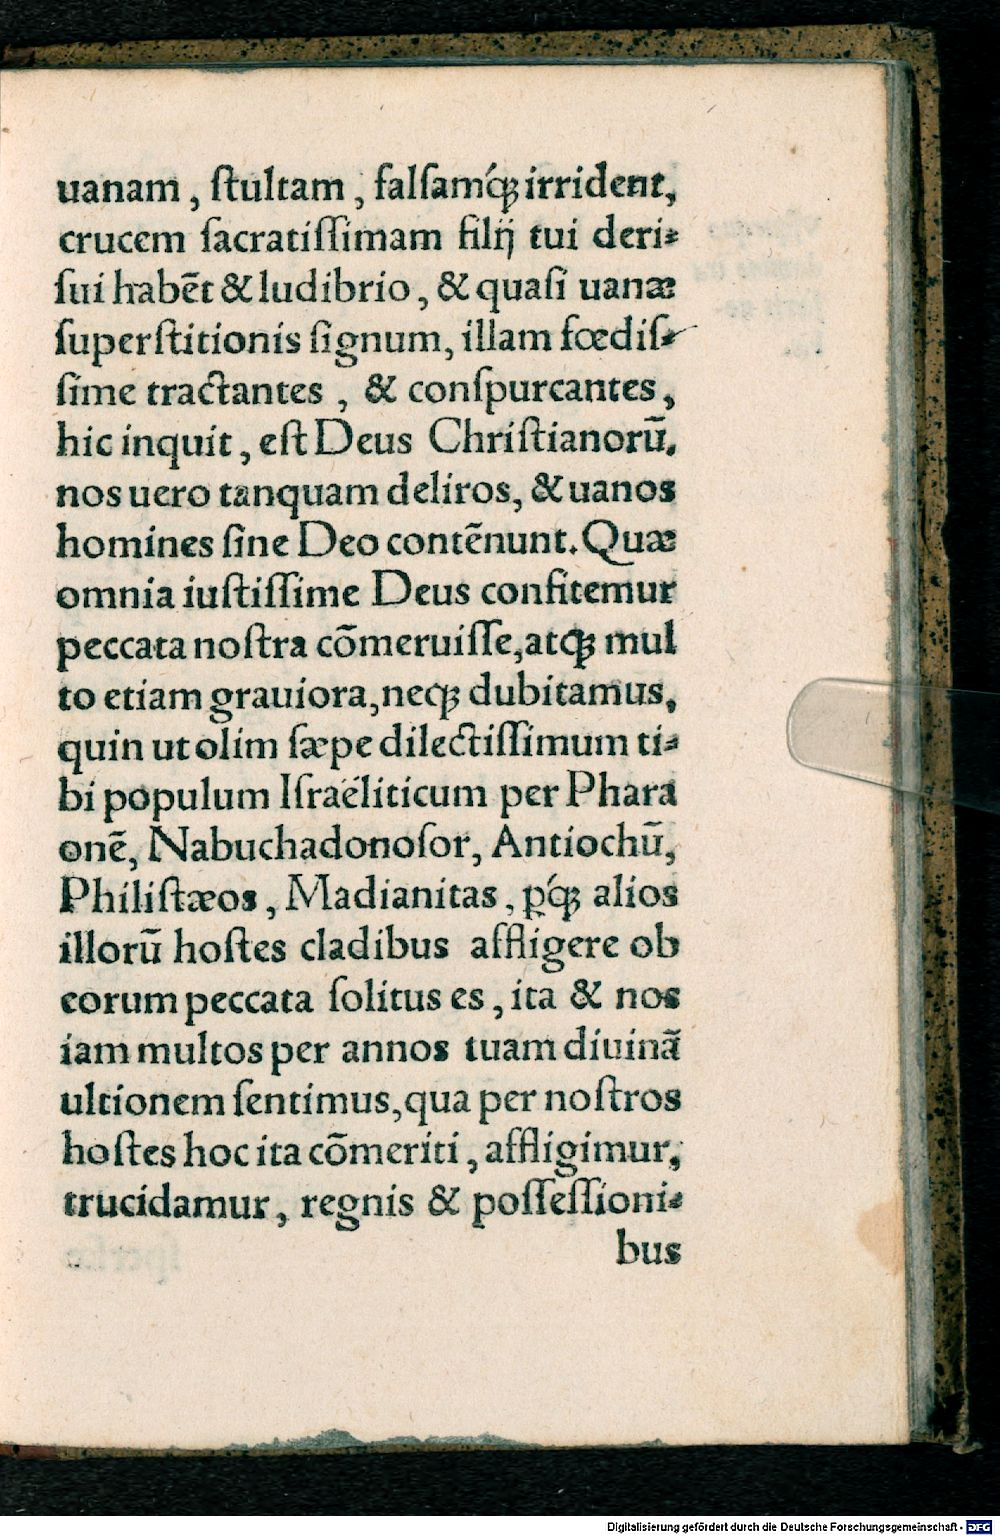 uanam, ſtultam, falſamq́ꝫ irrident,
crucem ſacratiſſimam filij tui deri⸗
ſui habēt & ludibrio, & quaſi uanæ
ſuperſtitionis ſignum, illam fœdiſ⸗
ſime tractantes, & conſpurcantes,
hic inquit, eſt Deus Chriſtianorū,
nos uero tanquam deliros, & uanos
homines ſine Deo contēnunt. Quæ
omnia iuſtiſſime Deus confitemur
peccata noſtra cōmeruiſſe, atqꝫ mul
to etiam grauiora, neqꝫ dubitamus,
quin ut olim ſæpe dilectiſſimum ti⸗
bi populum Iſraéliticum per Phara
onē, Nabuchadonoſor, Antiochū,
Philiſtæos, Madianitas, ꝑq́ꝫ alios
illorū hoſtes cladibus affligere ob
eorum peccata ſolitus es, ita & nos
iam multos per annos tuam diuinā
ultionem ſentimus, qua per noſtros
hoſtes hoc ita cōmeriti, affligimur,
trucidamur, regnis & poſſeſſioni⸗
bus
Digitalisierung gefördert durch die Deutsche Forschungsgemeinschaft - DFG